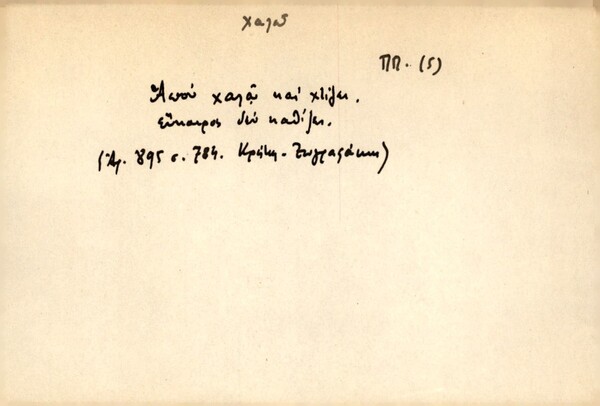 χαλῶ
ΠΠ. (5)
Ἁποὺ χαλᾷ καὶ χτίζει,
εὔκαιρος δὲν καθίζει.
(Ἀρ. 895 σ. 784. Κρήτη - Ζωγραφάκης)